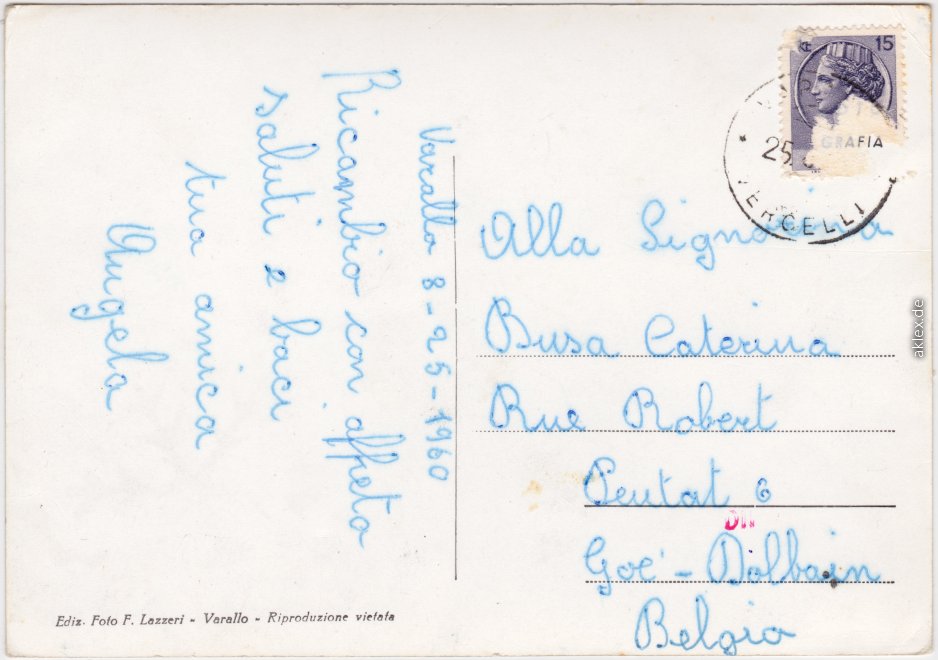 Varallo 8-25-1960
Ricambio con affeto
saluti e baci
tua amica
Angela
LIRE 15
GRAFIA
25
VERCELLI
Alla Signorina
Busa Caterina
Rue Robert
Pentat 6
Goé - Dolbain
Belgio
Ediz. Foto F. Lazzeri - Varallo - Riproduzione vietata
aklex.de